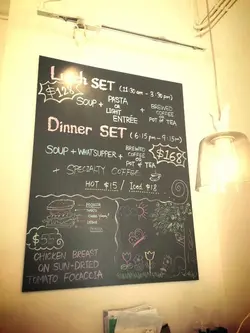 Lunch SET (11:30 am - 3:30 pm)
SOUP + PASTA OR LIGHT ENTRÉE + BREWED COFFEE OR POT OF TEA
Dinner SET (6:15 pm - 9:15 pm)
SOUP + WHATSUPPER + BREWED COFFEE OR POT OF TEA
$168
+ SPECIALTY COFFEE
HOT $15 / ICED $18
CHICKEN BREAST
ON SUN-DRIED
TOMATO FOCACCIA